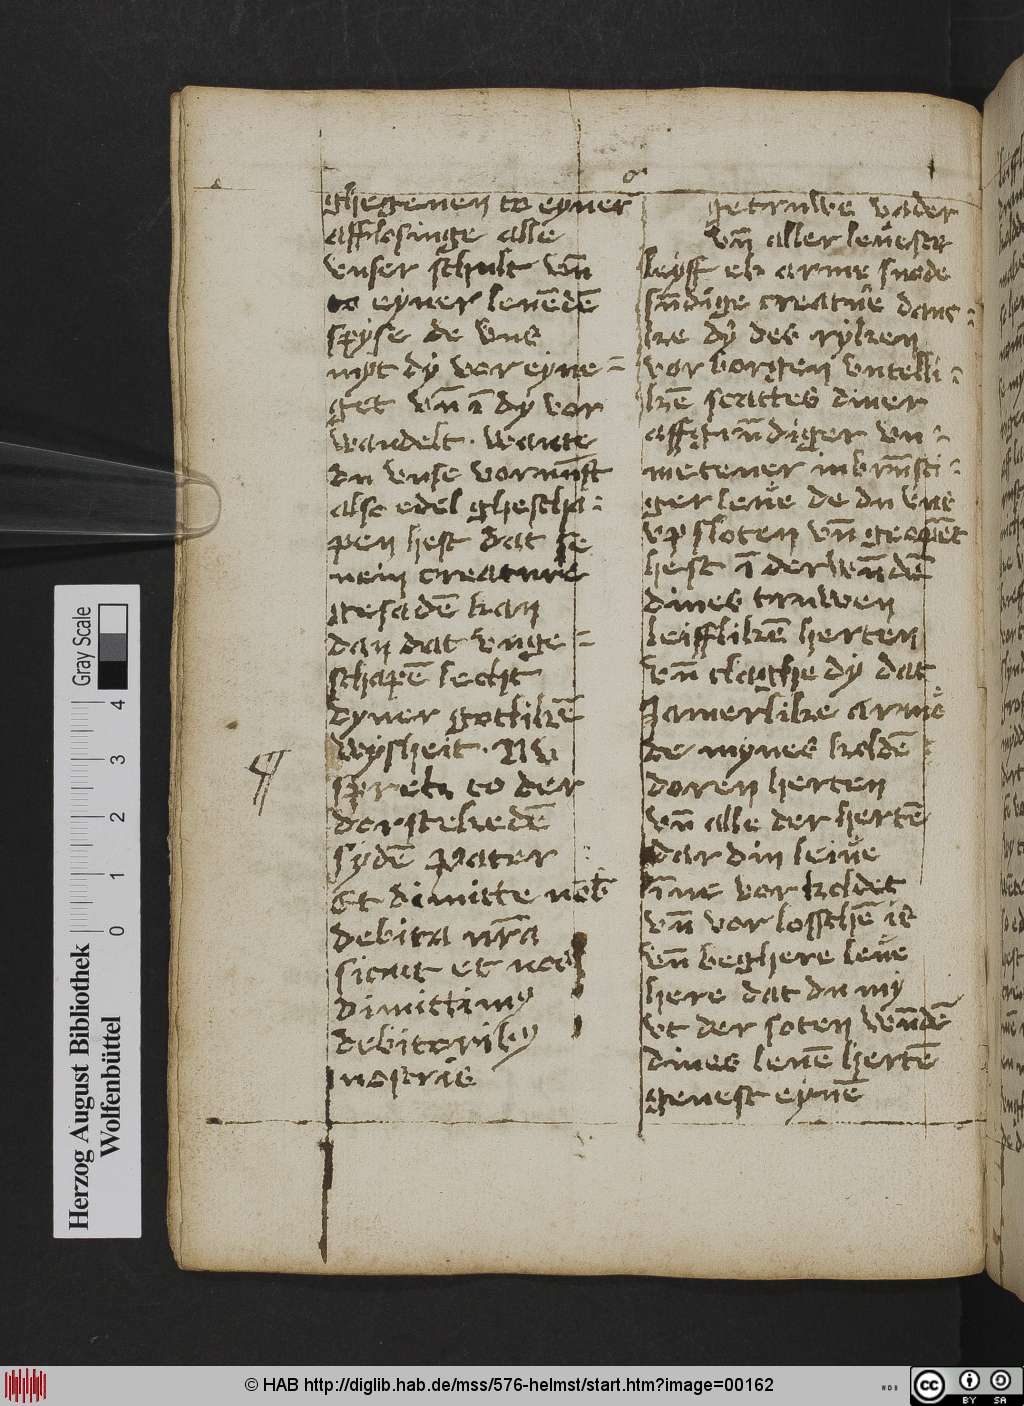 ghegeuen to eyner
afflosinge alle
vnser schult vn̄
to eyner leuēdē
spyse de vns
myt dy vor eyne=
get vn̄ ī dy vor
wandelt · wante
du vnse vornuft
also edel ghescha=
pen hest dat he
nein creature
gesadē kan
dan dat vnge=
schapē lecht
dyner gotlikē
wysheit · NV
sprek to der
dorstelxedē
sydē Pater
Et dimitte nob̄
debita nr̄a
sicut et nos
dimittimꝰ
debitoribꝰ
nostris
O getruwe vader
vn̄ aller leueste
leyff ek arme snode
sūdige creatuͤe danc=
ke dy des ryken
vor borgen vntelli=
kē scattes diner
affgrūdiger vn=
metener inbrūsti=
ger leue de du vns
vp sloten vn̄ geopēt
hest ī der wūdē
dines truwen
leifflikē herten
vn̄ claghe dy dat
Jamerlike arme
de mynes koldē
doren herten
vn̄ alle der hertē
dar din leiue
īne vor koldet
vn̄ vor losschē is
vn̄ beghere leue
here dat du my
vt der soten wūdē
dines leuē hertē
geuest eynē
Gray Scale
4
3
2
1
0
Herzog August Bibliothek
Wolfenbüttel
© HAB http://diglib.hab.de/mss/576-helmst/start.htm?image=00162
cc
BY SA